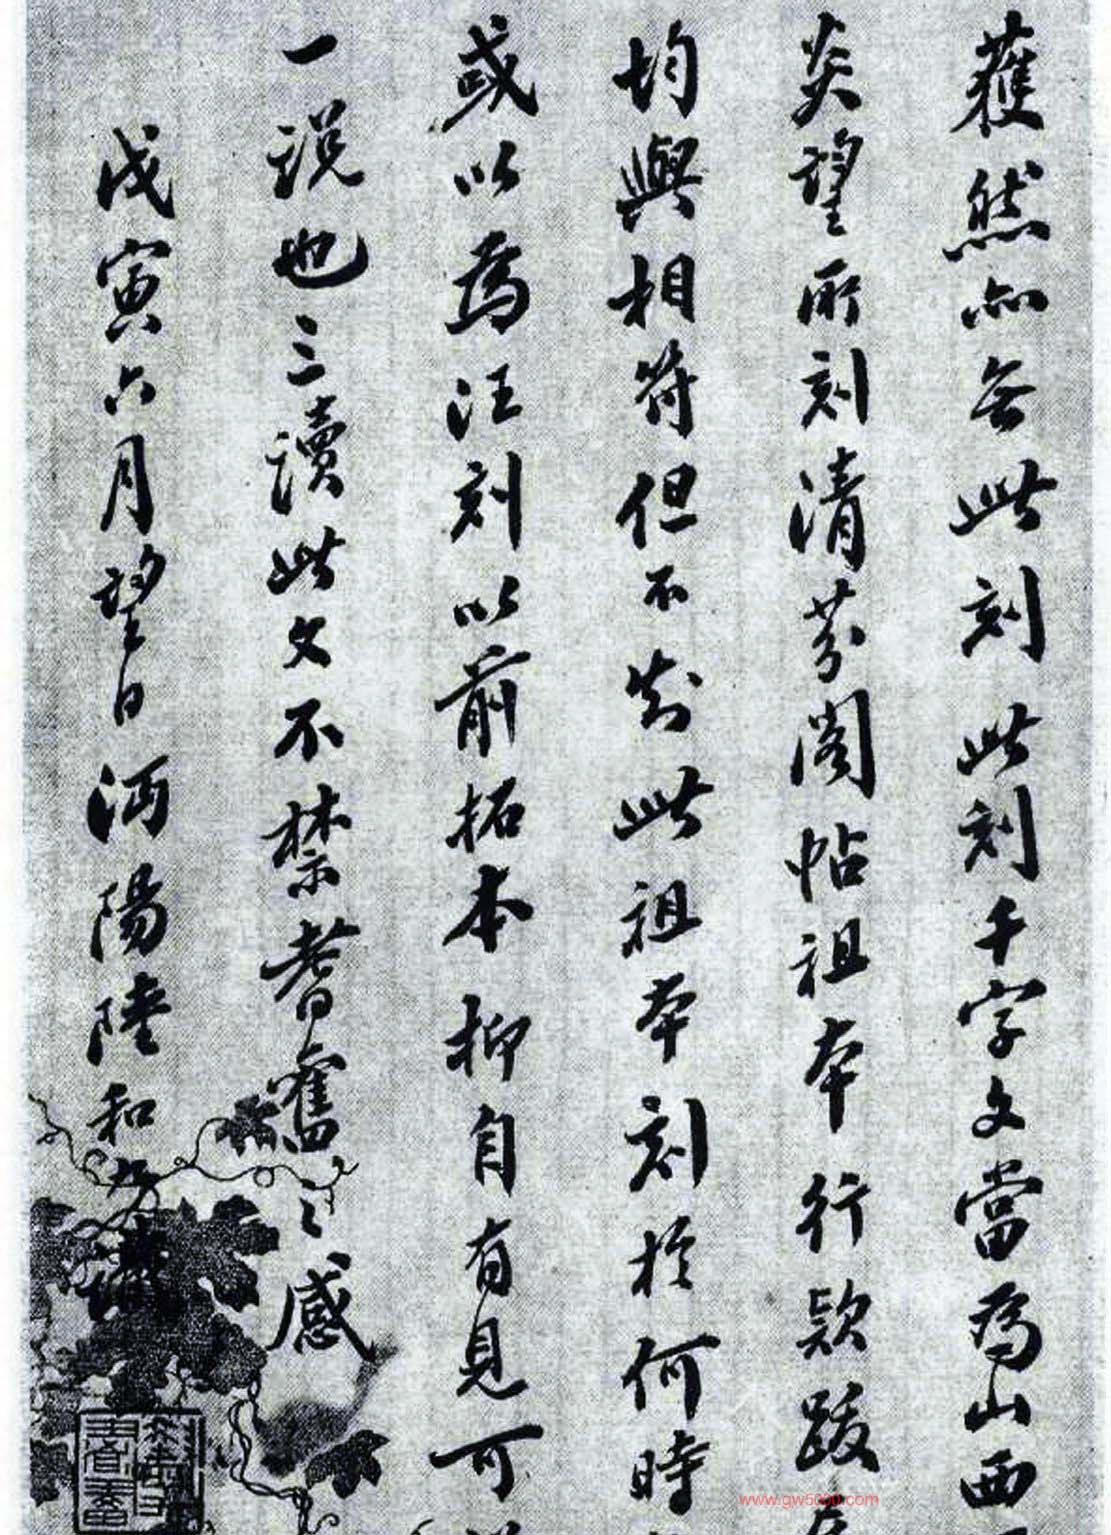 獲然亦無此刻此刻千字文當為山西
炎望所刻清芬閣帖祖本行款跋
均與相符但不知此祖本刻於何時
或以為汪刻以前拓本抑自有見可
一說也三讀此文不禁耆舊之感
戊寅六月望日沔陽陸和九
www.gw5000.com